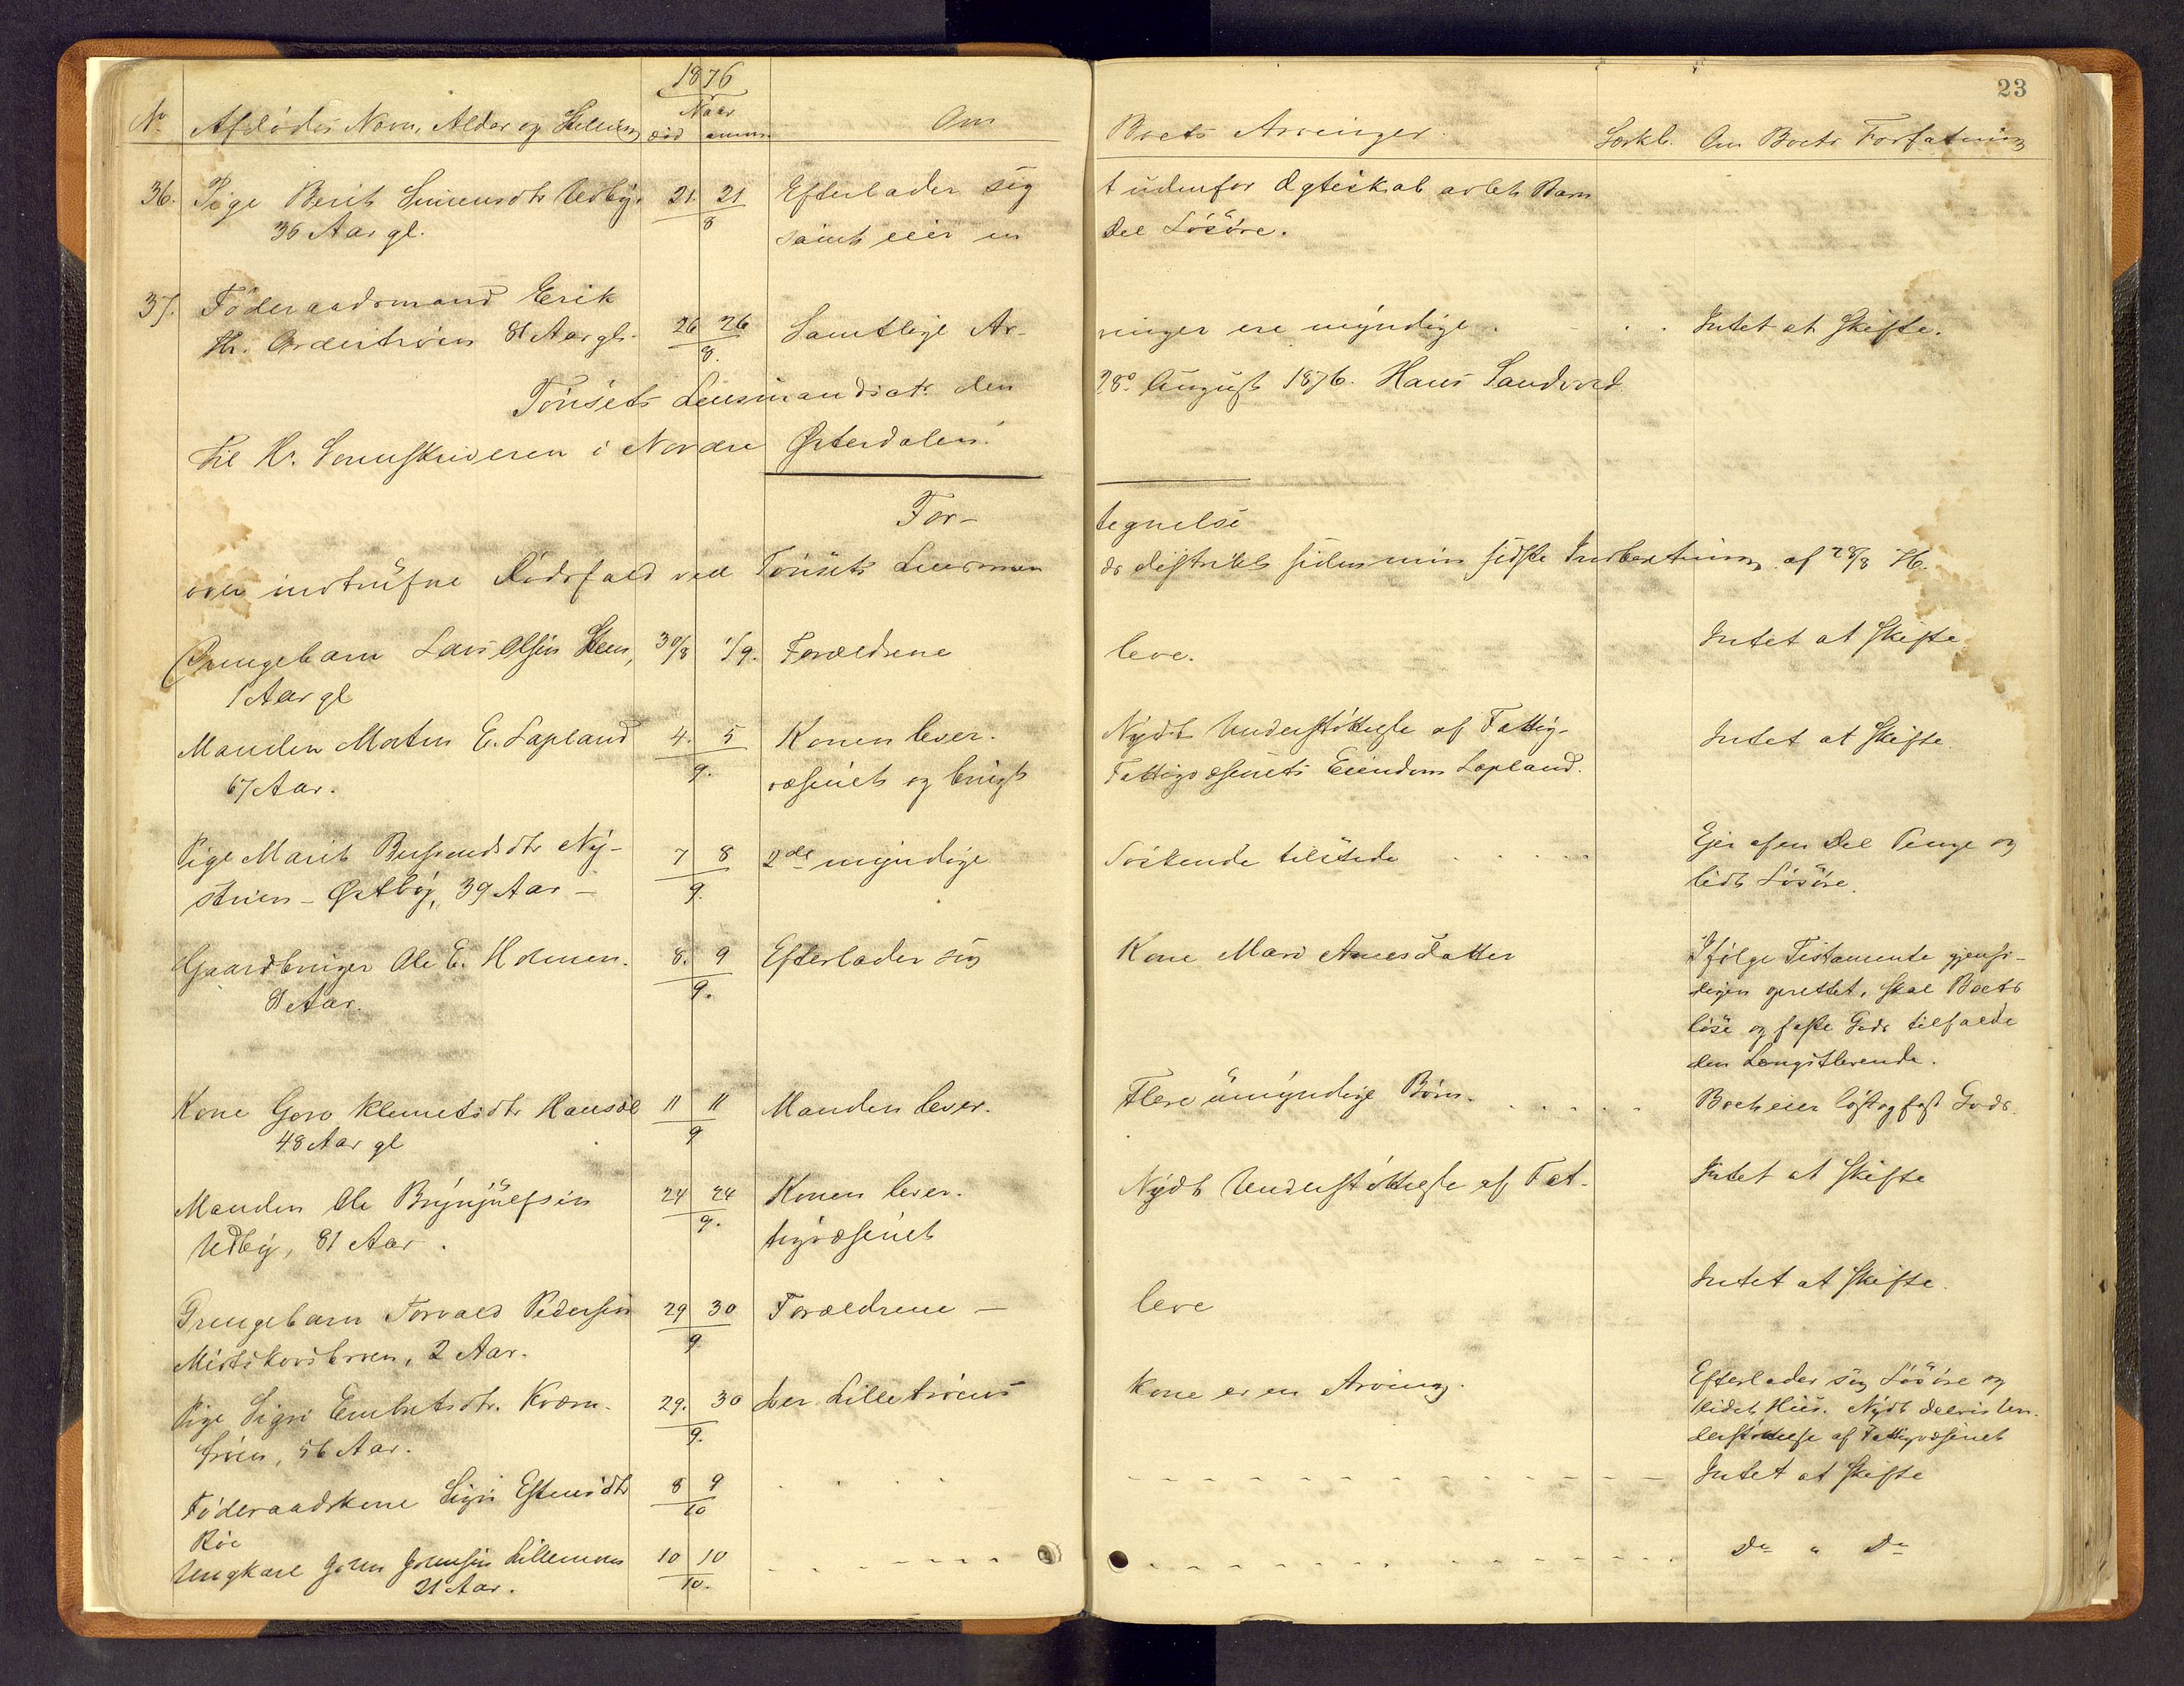 23
1876
No Afdødes Navn, Alder og Stilling Naar død anm. Om Boets Arvinger. Særkb. Om Boets Forfatning
36. Pige Berit Simensdtr Udby. 21 21 Efterlader sig t udenfor Ægteskab avlet Barn
36 Aar gl. 8 samt eier en Del Løsøre.
37. Føderaadsmand Erik
Hr. 81 Aar gl. 26 26 Samtlige Ar- vinger ere myndige. Intet at skifte.
8.
Tønsets Lensmandsat. den 28de August 1876. Hans Sandvord
Til Hr. Sorenskriveren i Nordre Østerdalen.
For- tegnelse
over indtrufne Dødsfald ved Tønsets Lensman ds distrikt siden min sidste Indberetning af 28/8 76.
Drengebarn Lars Olsen Steen, 30/8 1/9. Forældrene leve. Intet at skifte
1 Aar gl
Manden Morten E. Lapland 4. 5 Konen lever. Nydt Understøttelse af Fattig- Intet at skifte.
67 Aar. 9. væsenet og brugt Fattigvæsenets Eiendom Lapland.
Pige Marit Ny- 7 8 2de myndige Søskende tilstede Ejer af en Del Penge og
støien - Østby, 39 Aar - 9. lidt Løsøre.
Gaardbruger Ole E. Holmen. 8. 9 Efterlader sig Kone Mari Arnesdatter Ifølge Testamente gjensi-
81 Aar. 9. digen oprettet, skal Boets
løse og faste Gods tilfalde
den Længstlevende.
Kone Goro Klemetsdtr Hausæl 11 11 Manden lever. Flere umyndige Børn. Boet eier løst og fast Gods.
48 Aar gl 9
Manden Ole Brynjulfsen 24 24 Konen lever. Nydt Understøttelse af Fat- Intet at skifte
Udby, 81 Aar. 9. tigvæsenet
Drengebarn Torvald Pedersen 29 30 Forældrene - leve Intet at skifte.
Midtskovsbroen, 2 Aar. 9.
Pige Sigri Embretsdtr. Kværn- 29. 30 Per Lilletrøens Kone er en Arving. Efterlader sig Løsøre og
trøen, 56 Aar. 9. lidet Huus. Nydt delvis Un-
derstøttelse af Fattigvæsenet
Føderaadskone Sigri Estensdtr 8 9 Intet at skifte
Røe 10
Ungkarl Joren Jorensen Lillemoen 10 10 Do " Do
21 Aar. 10.